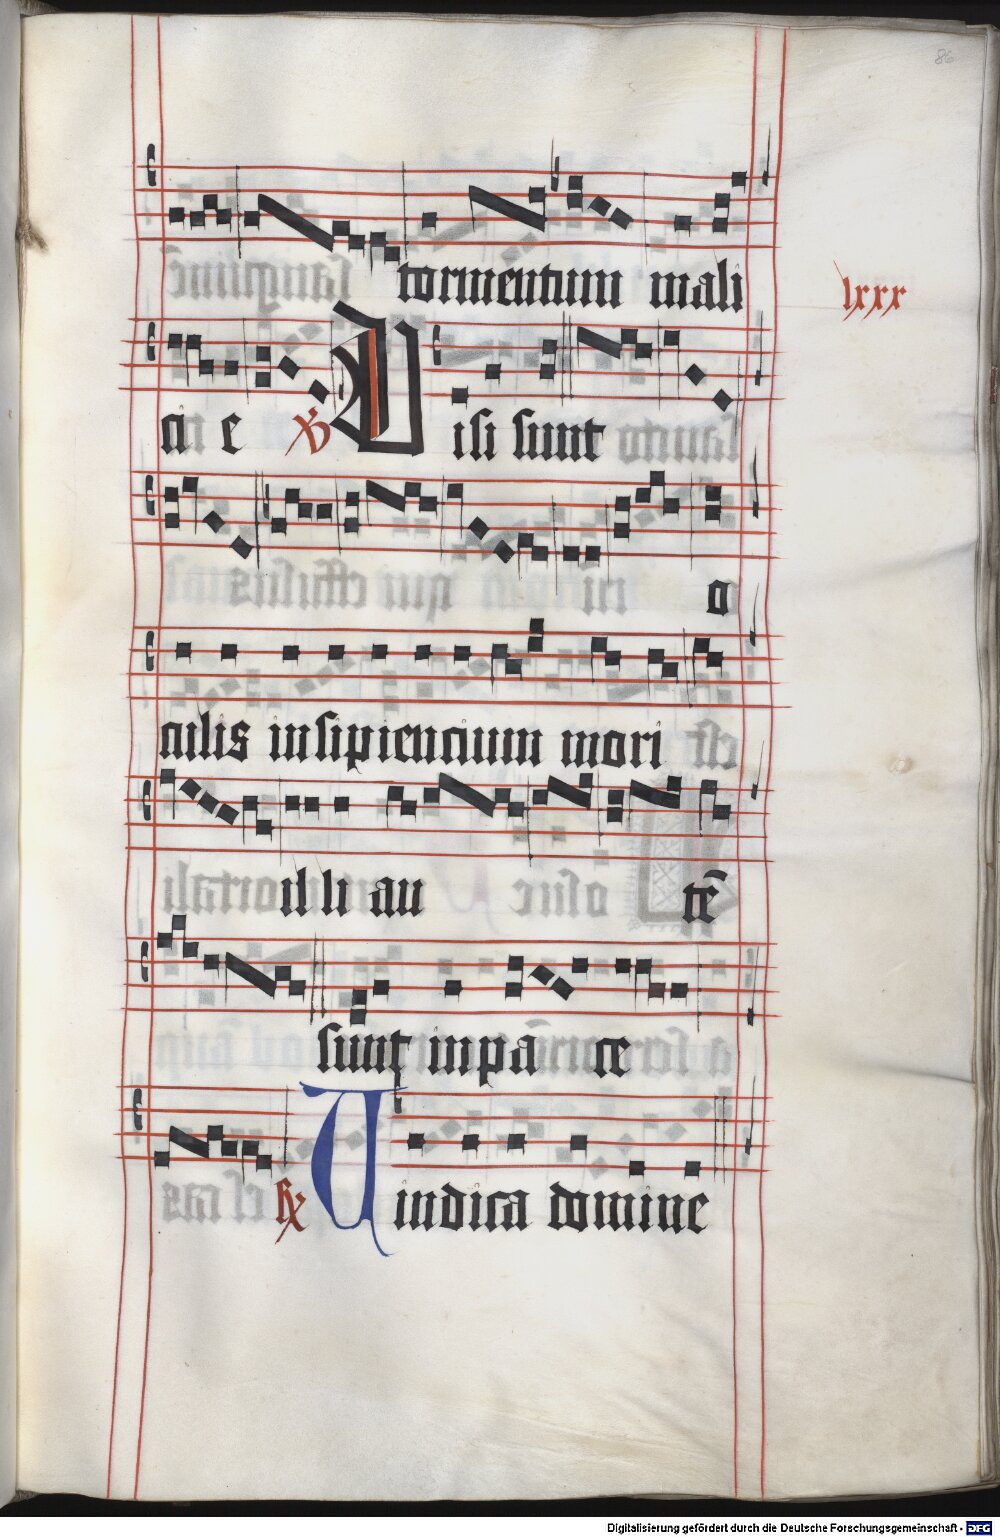 86
tormentum mali
lxxx
ci e ℣ Uisi sunt
o
culis insipiencium mori
illi au tē
sunt in pa ce
℟ Uindica domine
Digitalisierung gefördert durch die Deutsche Forschungsgemeinschaft - DFG